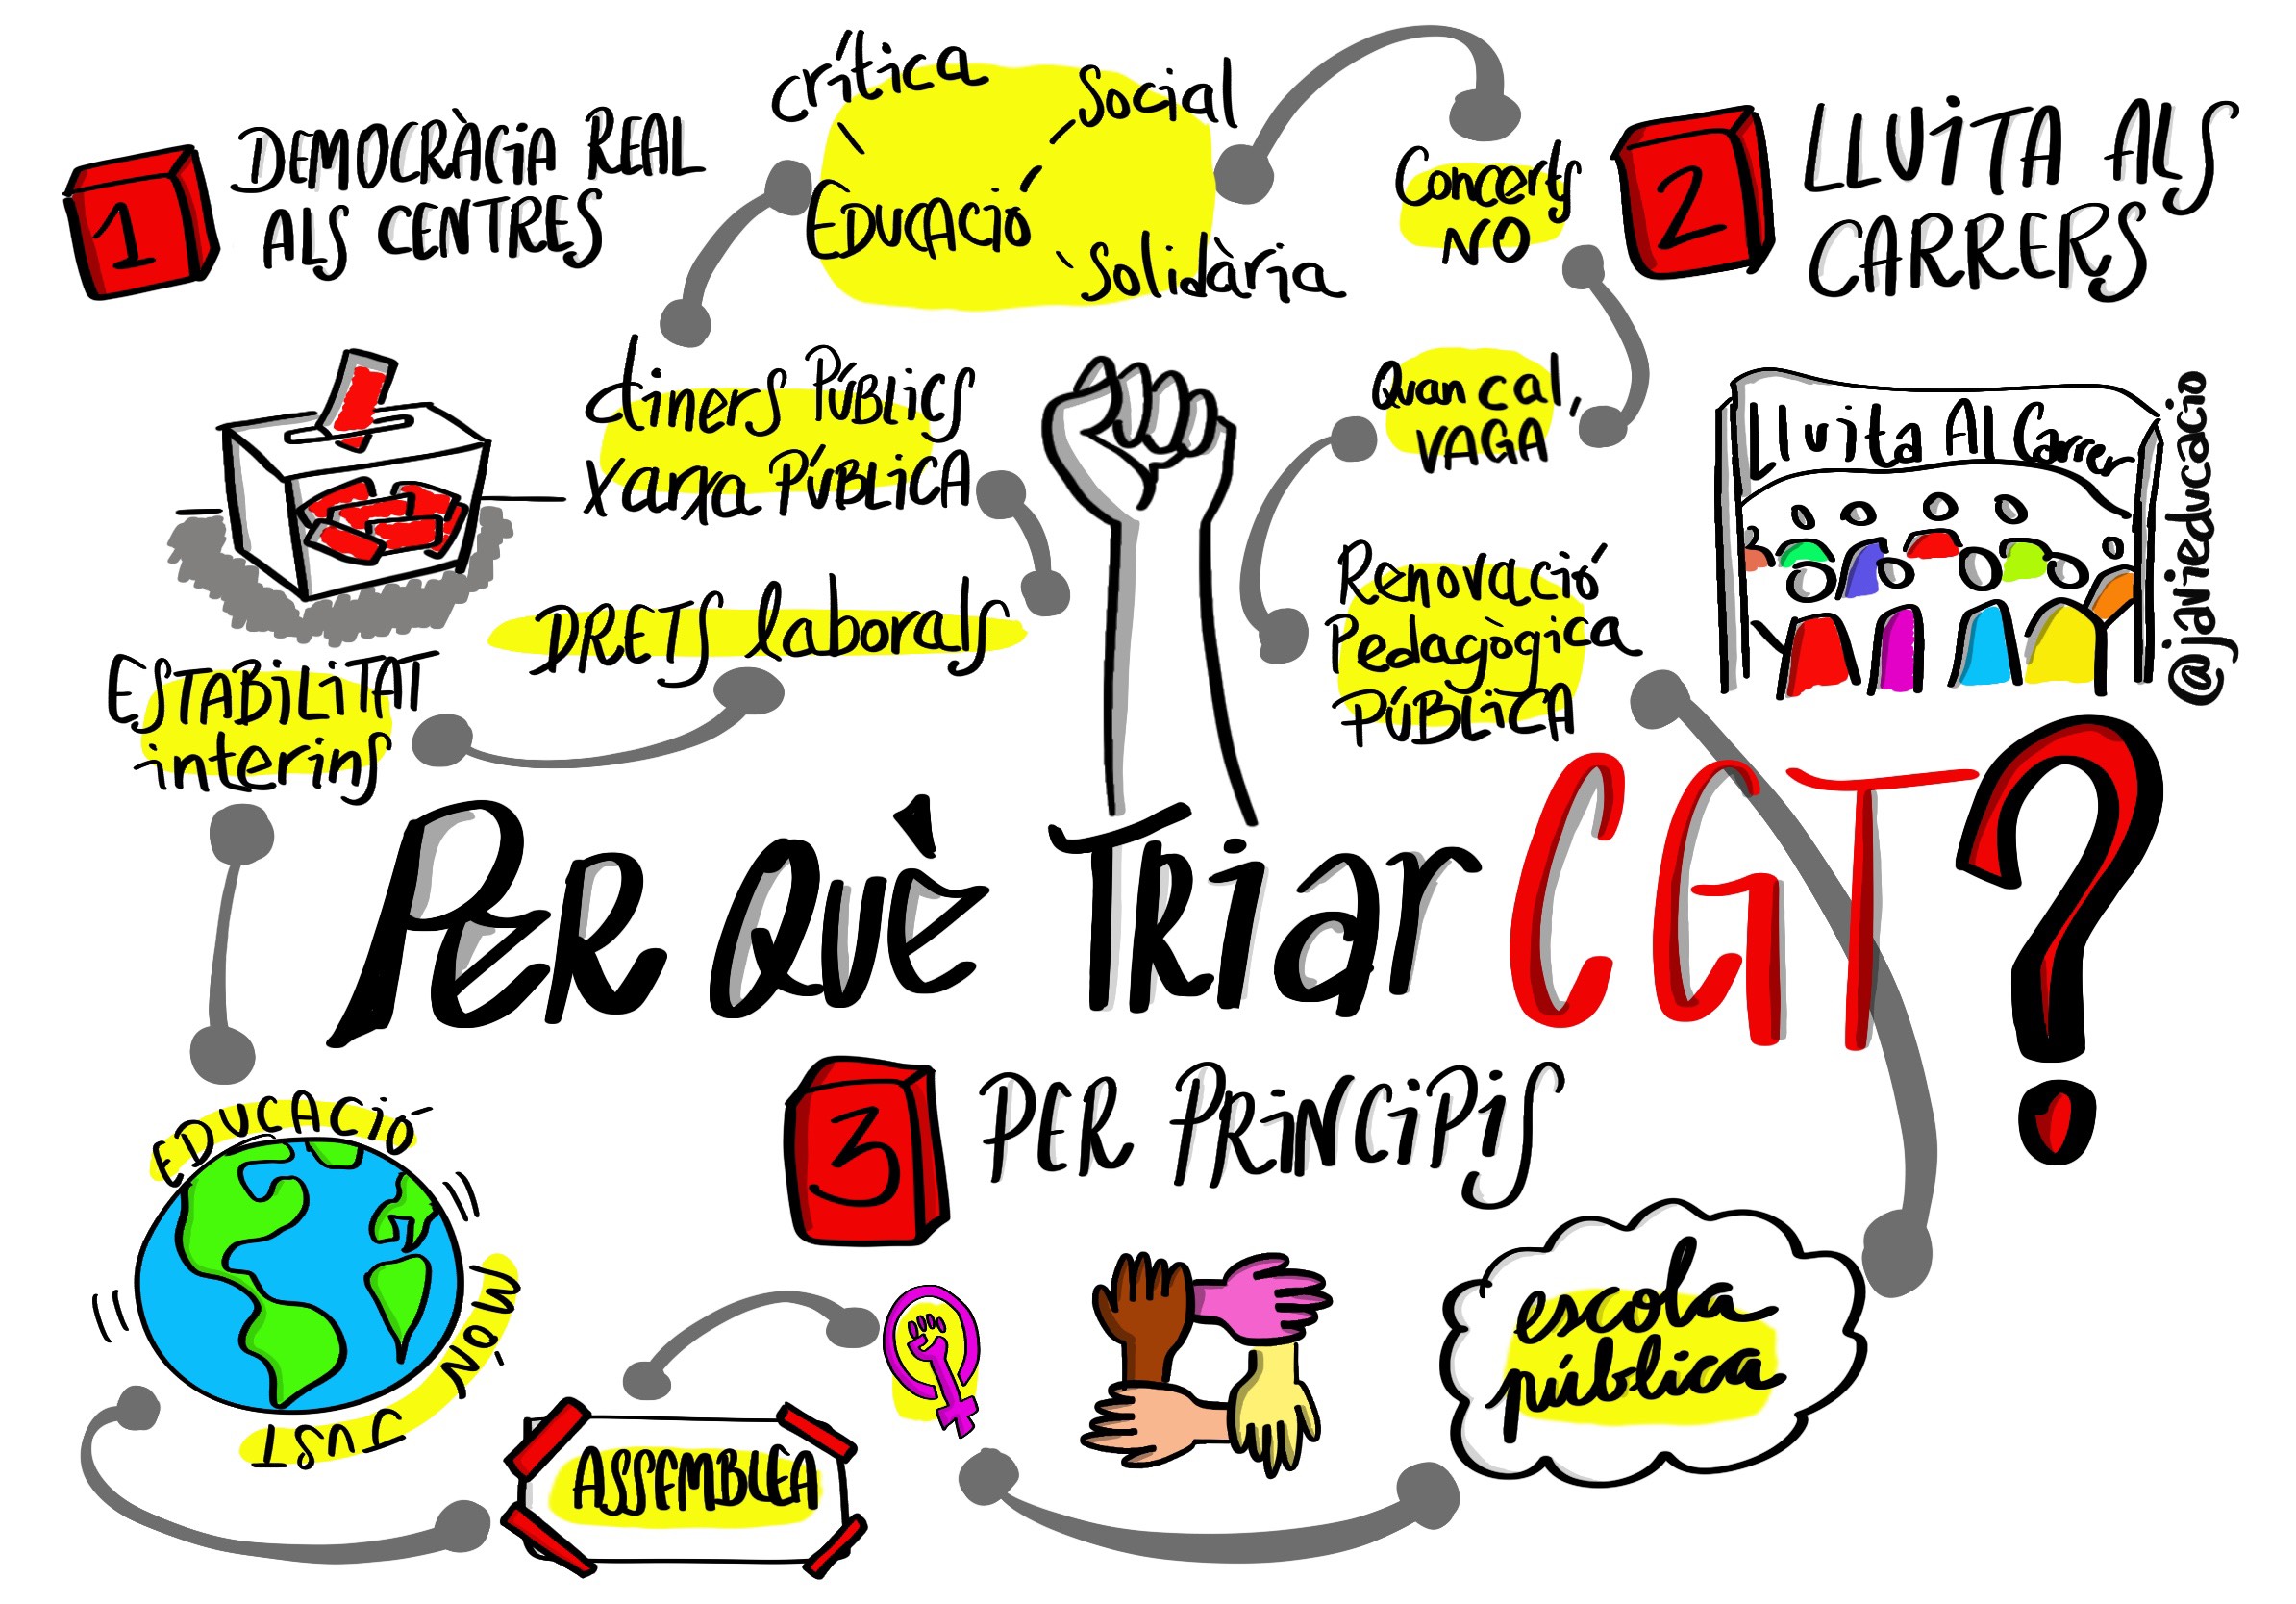 1
DEMOCRÀCIA REAL
ALS CENTRES
crítica
Social
EDUCACIÓ
Solidària
Concerts
NO
2
LLUITA ALS
CARRERS
diners PÚBLICS
Xarxa PÚBLICA
Quan cal,
VAGA
Lluita Al Carrer
@javieducacio
DRETS laborals
Renovació
Pedagògica
PÚBLICA
ESTABILITAT
interins
PER QUÈ TRIAR CGT?
3
PER PRINCIPIS
EDUCACIÓ
MÓN
JUST
ASSEMBLEA
escola
pública